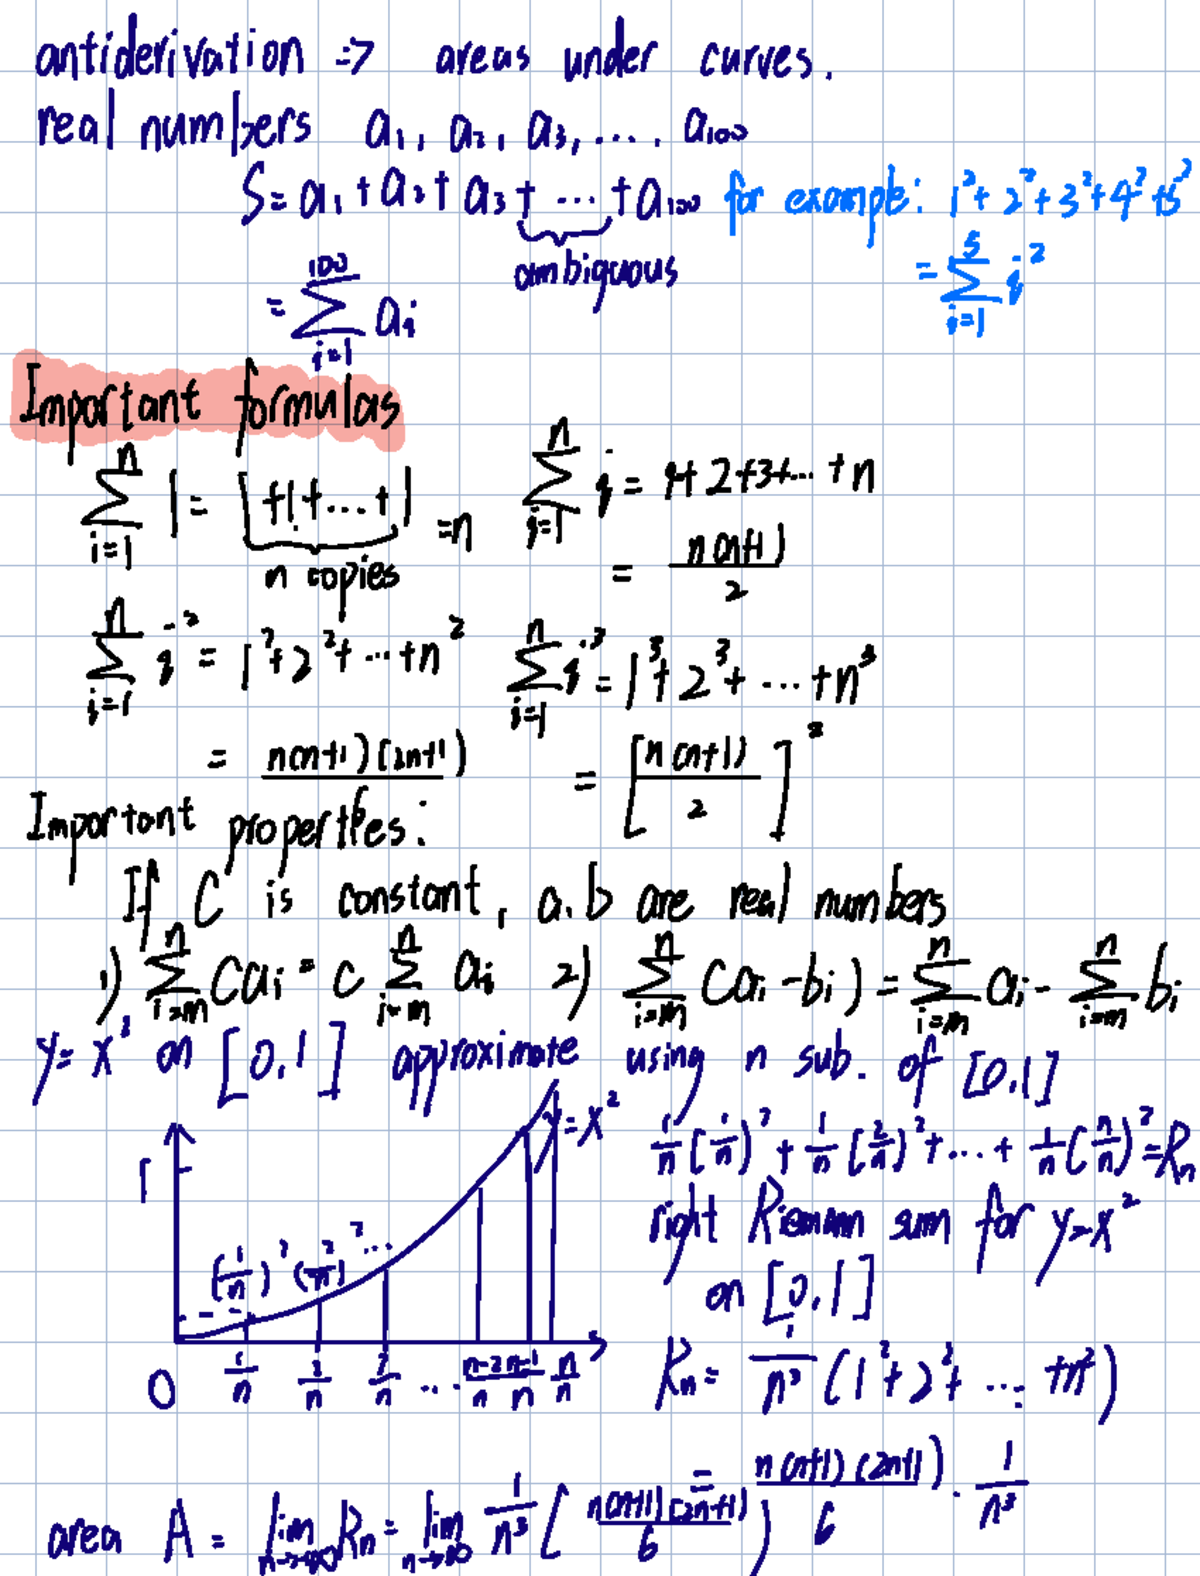 antiderivation => areas under curves.
real numbers a₁, a₂, a₃, .... a₁₀₀
S = a₁ + a₂ + a₃ + ... + a₁₀₀ for example: 1² + 2² + 3² + 4² + 5²
ambiguous
= ∑_{i=1}^{100} a_i = ∑_{i=1}^{5} i²
Important formulas
∑_{i=1}^{n} 1 = 1+1+...+1 = n ∑_{i=1}^{n} i = 1+2+3+...+n
n copies = n(n+1)/2
∑_{i=1}^{n} i² = 1²+2²+...+n² ∑_{i=1}^{n} i³ = 1³+2³+...+n³
= n(n+1)(2n+1)/6 = [n(n+1)/2]²
Important properties:
If C is constant, a, b are real numbers
1) ∑_{i=m}^{n} Ca_i = c ∑_{i=m}^{n} a_i 2) ∑_{i=m}^{n} (a_i - b_i) = ∑_{i=m}^{n} a_i - ∑_{i=m}^{n} b_i
y = x² on [0,1] approximate using n sub. of [0,1]
y = x² 1/n(1/n)² + 1/n(2/n)² + ... + 1/n(n/n)² = Rn
1 right Riemann sum for y=x²
(1/n)² (2/n)² ... on [0,1]
0 1/n 2/n 3/n ... n-2/n n-1/n n/n Rn = 1/n³ (1²+2²+ ... +n²)
= n(n+1)(2n+1)/6 · 1/n³
area A = lim_{n→∞} Rn = lim_{n→∞} 1/n³ [n(n+1)(2n+1)/6)